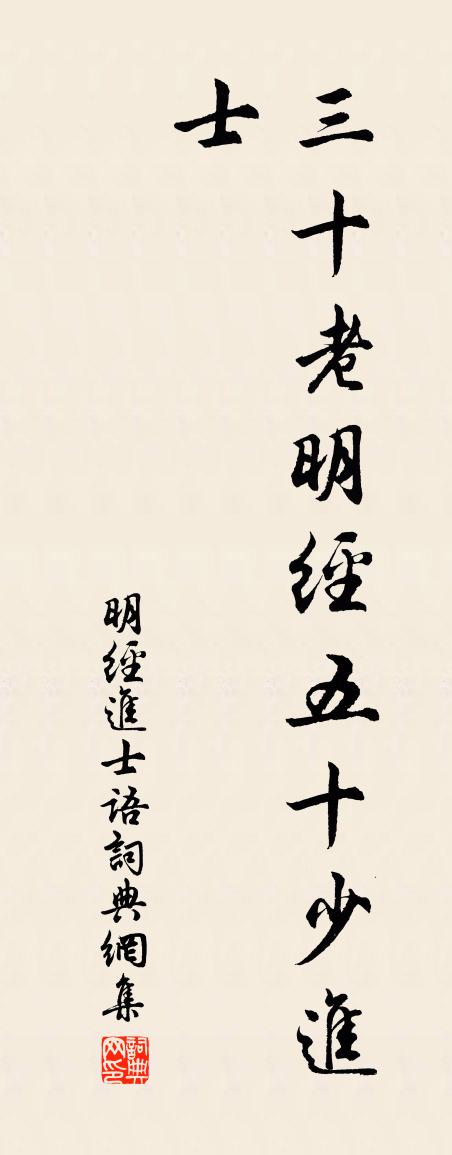 三十老明經五十少進
士
明經進士语詞典網集
詞典网印